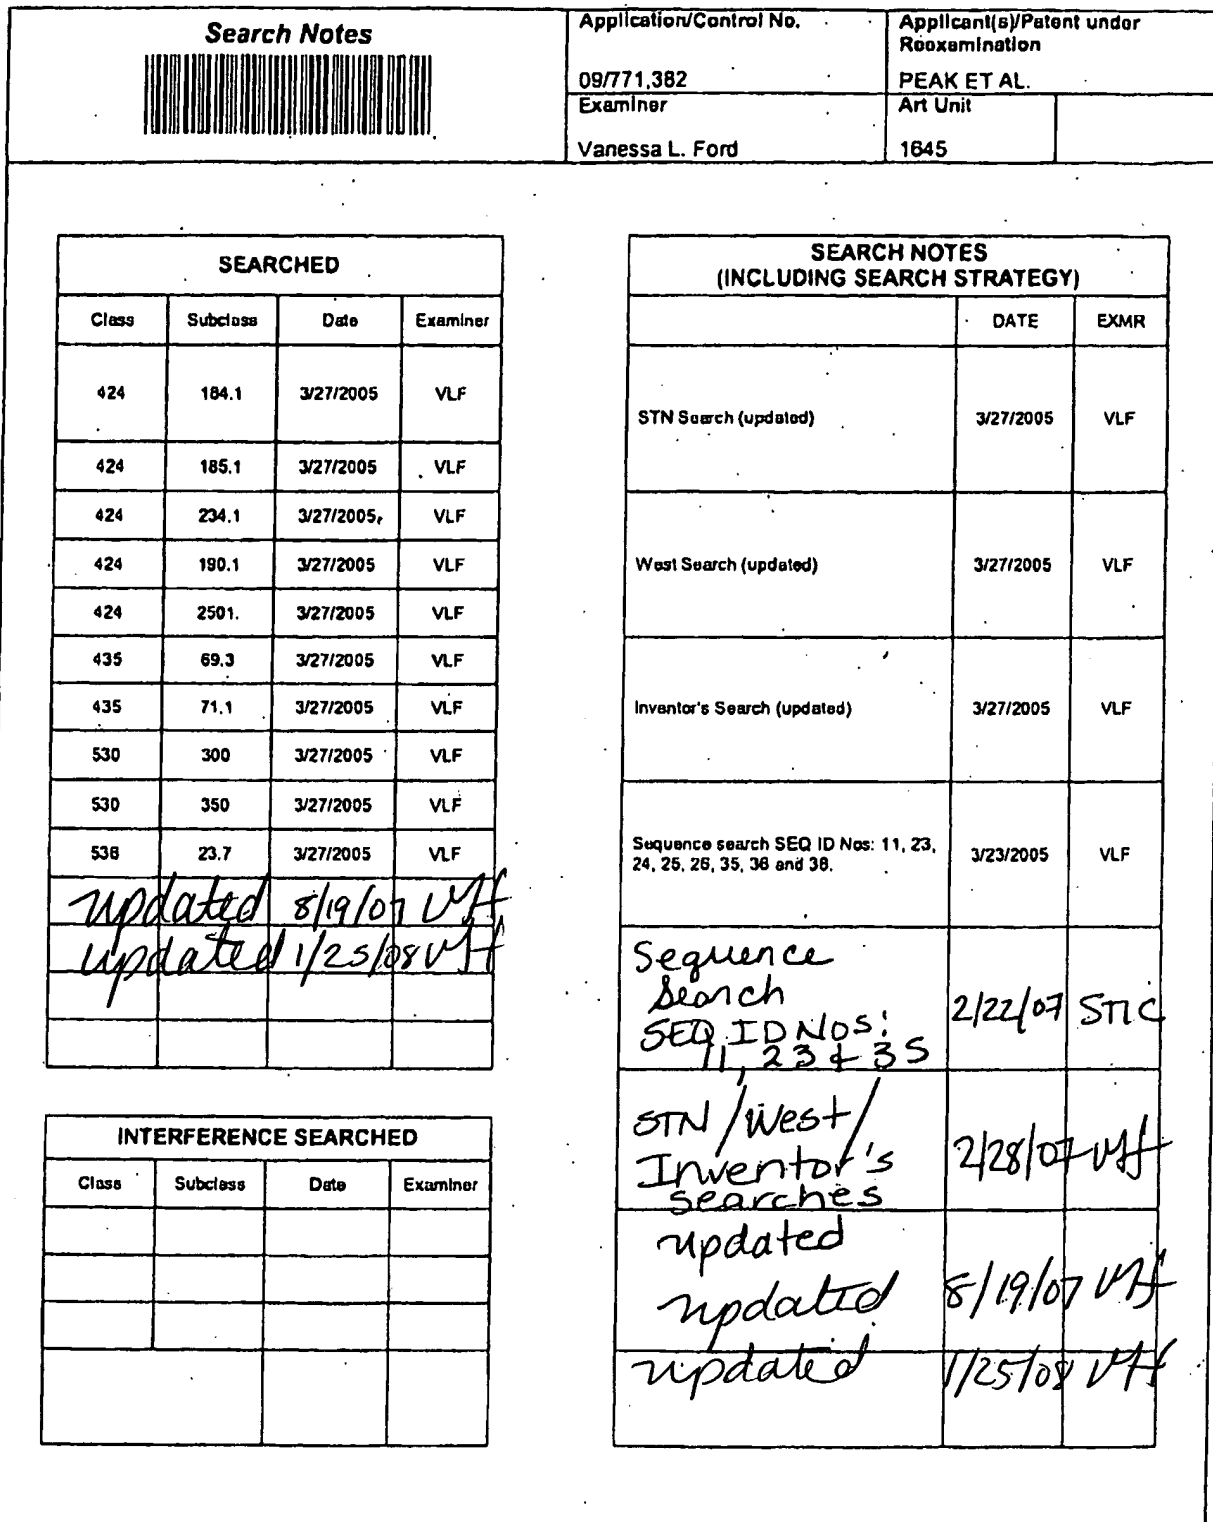 Search Notes
Application/Control No.
09/771,382
Applicant(s)/Patent under
Reexamination
PEAK ET AL.
Examiner
Vanessa L. Ford
Art Unit
1645
SEARCHED
Class Subclass Date Examiner
424 184.1 3/27/2005 VLF
424 185.1 3/27/2005 VLF
424 234.1 3/27/2005 VLF
424 190.1 3/27/2005 VLF
424 2501. 3/27/2005 VLF
435 69.3 3/27/2005 VLF
435 71.1 3/27/2005 VLF
530 300 3/27/2005 VLF
530 350 3/27/2005 VLF
536 23.7 3/27/2005 VLF
updated 8/19/07 VLF
updated 1/25/08 VLF
INTERFERENCE SEARCHED
Class Subclass Date Examiner
SEARCH NOTES
(INCLUDING SEARCH STRATEGY)
DATE EXMR
STN Search (updated) 3/27/2005 VLF
West Search (updated) 3/27/2005 VLF
Inventor's Search (updated) 3/27/2005 VLF
Sequence search SEQ ID Nos: 11, 23,
24, 25, 26, 35, 36 and 38. 3/23/2005 VLF
Sequence
Search
SEQ ID NOS:
11, 23 & 35
2/22/07 STIC
STN/West/
Inventor's
searches
updated
2/28/07 VLF
updated 8/19/07 VLF
updated 1/25/08 VLF